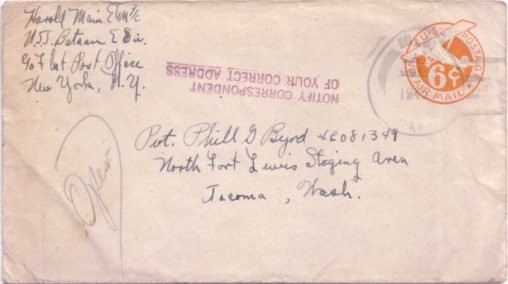 Harold Main EM 3/c
U.S.S. Bataan E Div.
c/o Flt Post Office
New York, N.Y.
U.S. POSTAGE
6¢
AIR MAIL
NOTIFY CORRESPONDENT
OF YOUR CORRECT ADDRESS
Pvt. Phill G Byrd 42081349
North Fort Lewis Staging Area
Tacoma, Wash.